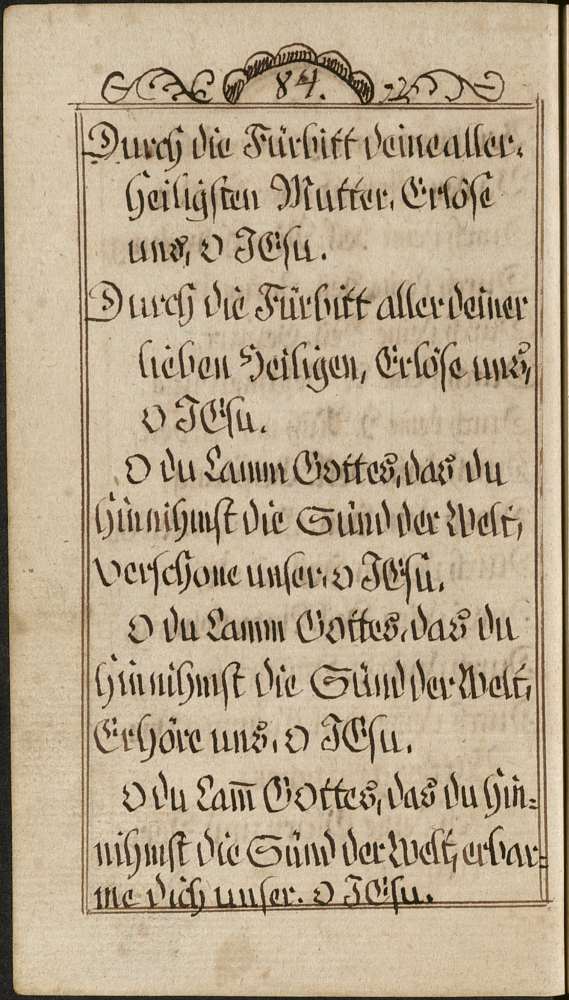 84.
Durch die Fürbitt deine aller-
heiligsten Mutter, Erlöse
uns, O JEsu.
Durch die Fürbitt aller deiner
lieben Heiligen, Erlöse uns,
O JEsu.
O du Lamm Gottes, das du
hinnihmst die Sünd der Welt,
verschone unser, o JEsu.
O du Lamm Gottes, das du
hinnihmst die Sünd der Welt,
Erhöre uns, O JEsu.
O du Lam̄ Gottes, das du hin=
nihmst die Sünd der Welt, erbar=
me dich unser. O JEsu.